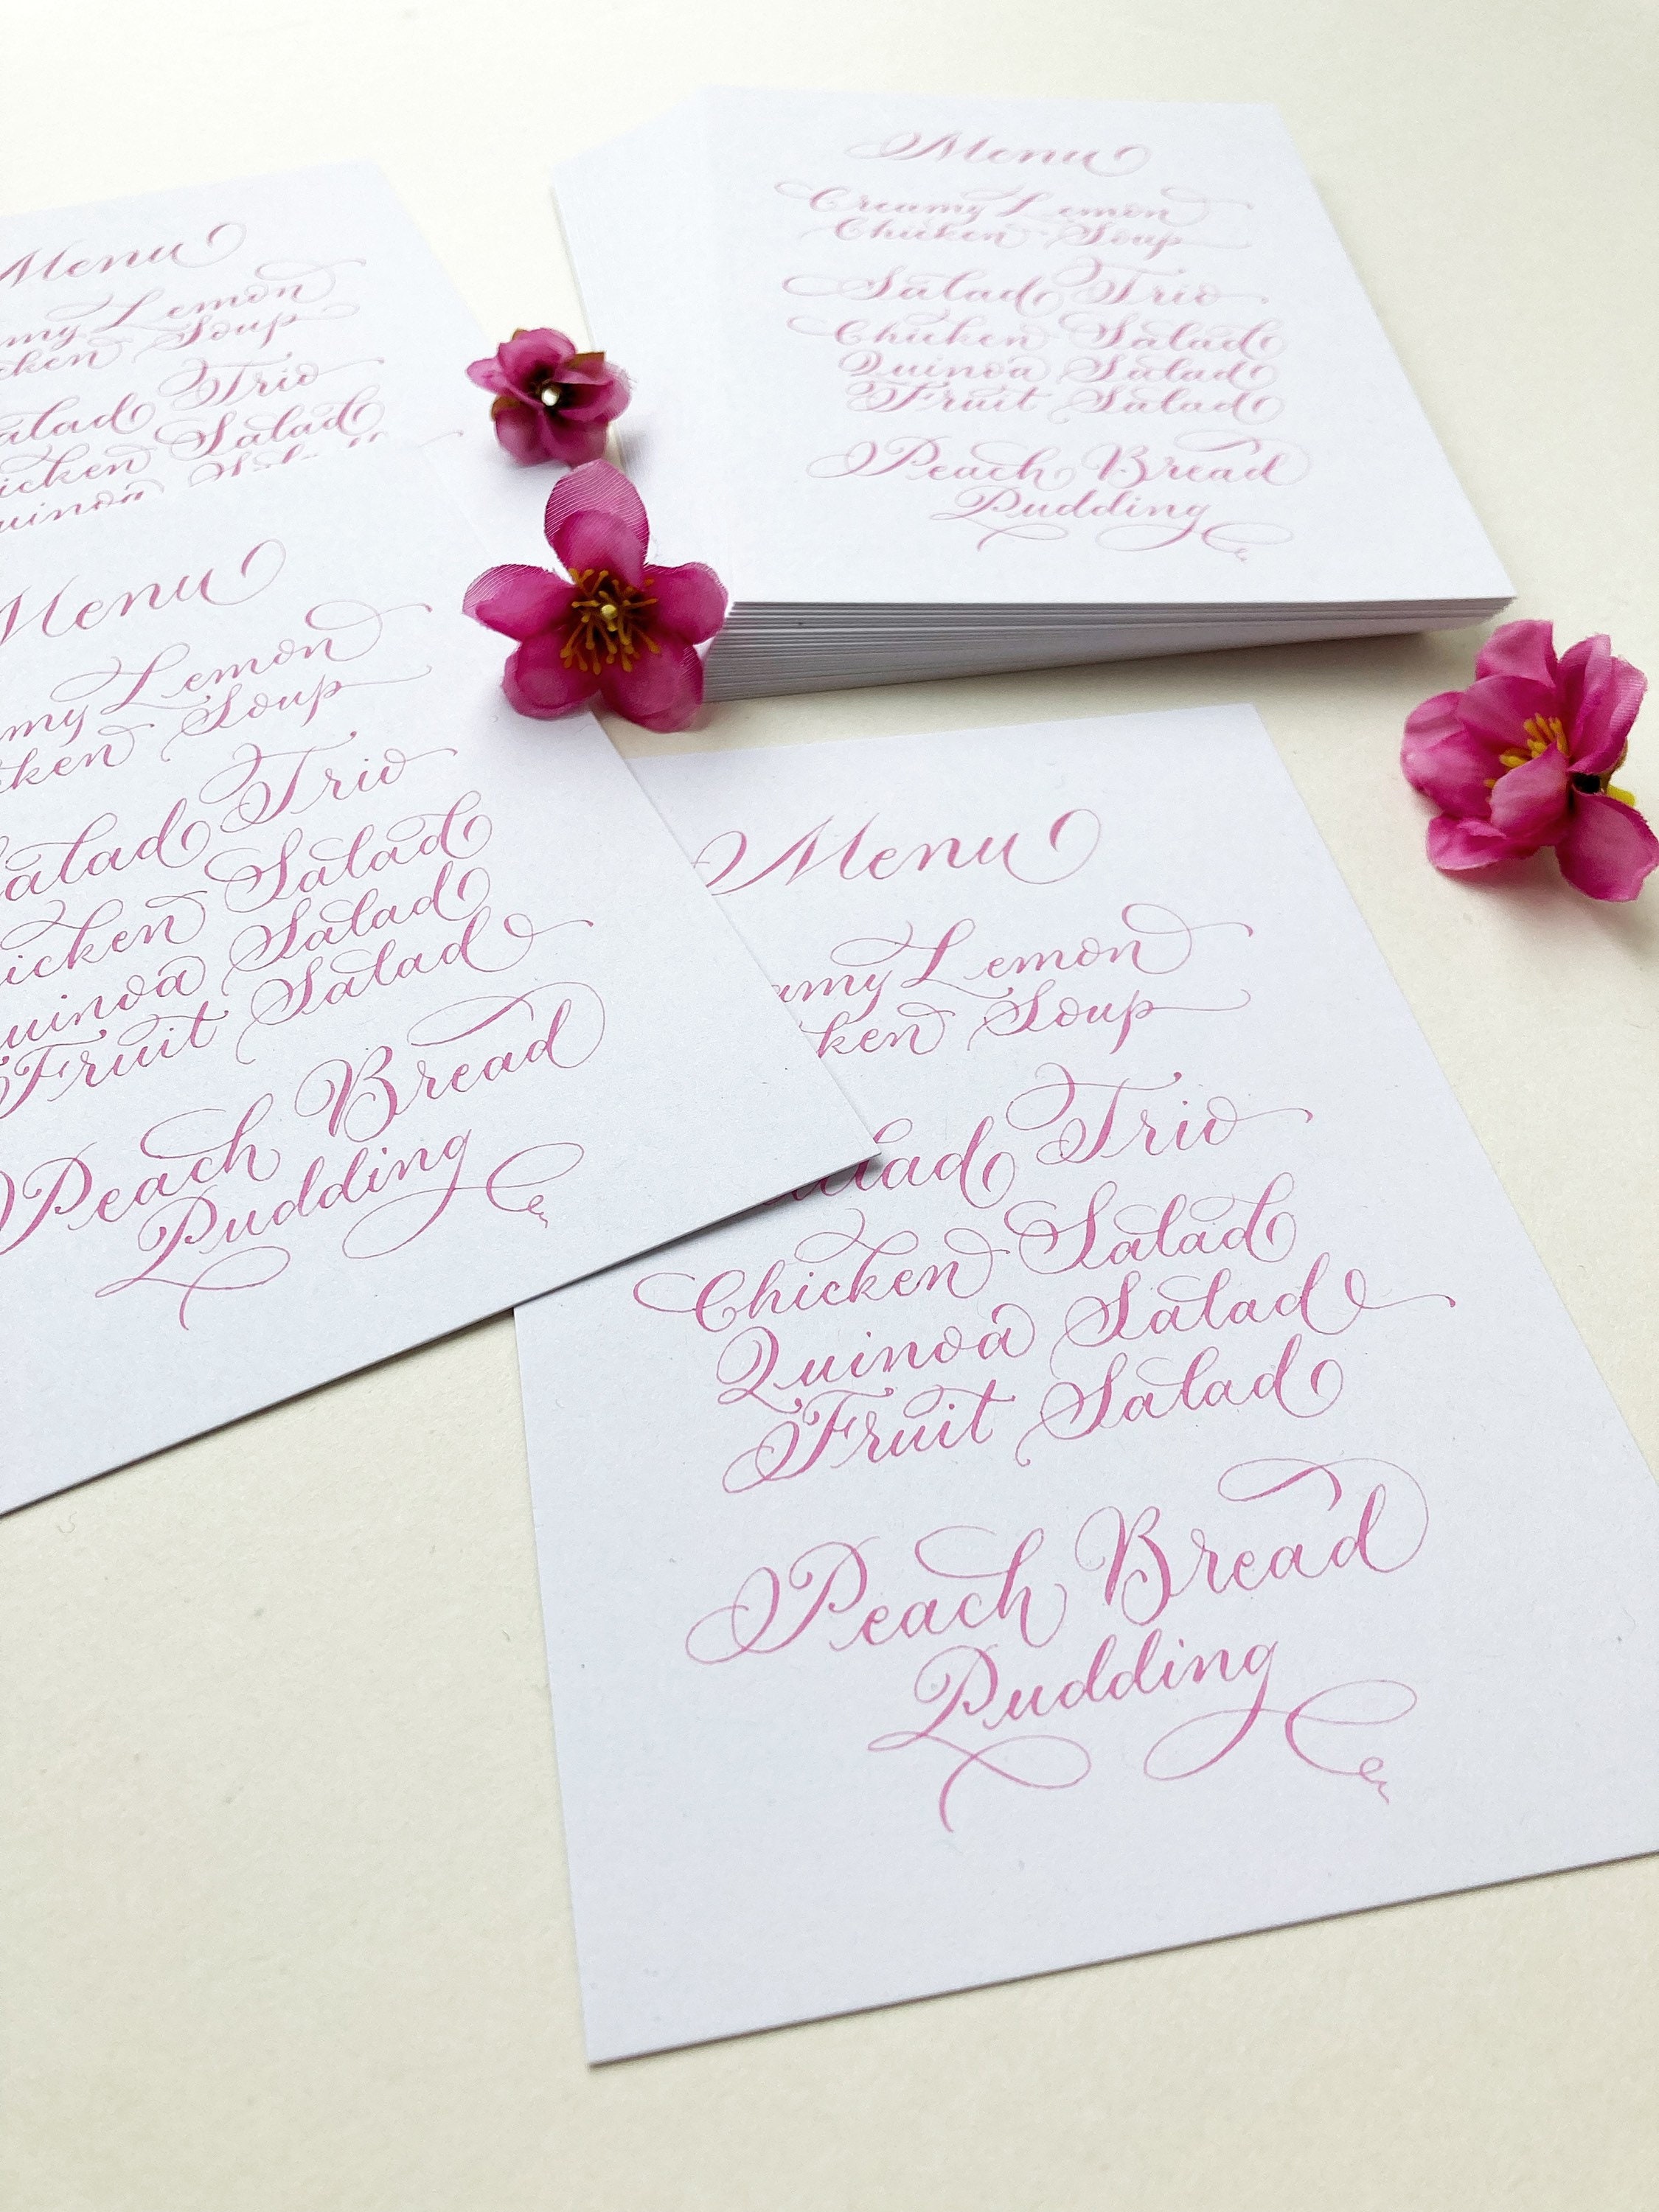 Menu
Creamy Lemon
Chicken Soup
Salad Trio
Chicken Salad
Quinoa Salad
Fruit Salad
Peach Bread
Pudding
Menu
my Lemon
cken Soup
alad Trio
icken Salad
uinoa
Menu
my Lemon
ken Soup
Salad Trio
icken Salad
uinoa Salad
Fruit Salad
Peach Bread
Pudding
Menu
amy Lemon
ken Soup
lad Trio
Chicken Salad
Quinoa Salad
Fruit Salad
Peach Bread
Pudding